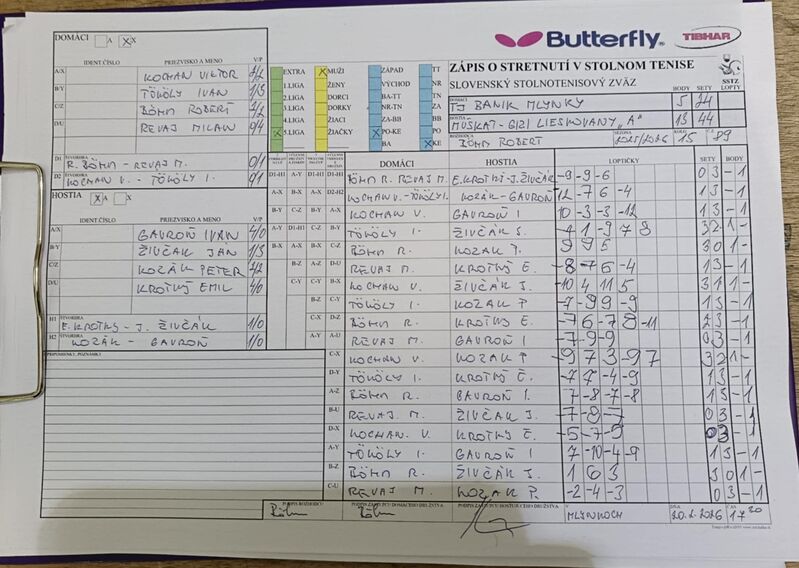 Butterfly
TIBHAR
DOMÁCI A X
IDENT.ČÍSLO PRIEZVISKO A MENO V/P
A/X KOCMAN VIKTOR 2/2
B/Y TÖKÖLY IVAN 1/3
C/Z BÖHM ROBERT 2/2
D/U REVAJ MILAN 0/4
D1 ŠTVORHRA R. BÖHM - REVAJ M. 0/1
D2 ŠTVORHRA KOCMAN V. - TÖKÖLY I. 0/1
HOSTIA X X
IDENT.ČÍSLO PRIEZVISKO A MENO V/P
A/X GAVROŇ IVAN 4/0
B/Y ŽIVČÁK JÁN 1/3
C/Z KOZÁK PETER 2/2
D/U KROTKÝ EMIL 4/0
H1 ŠTVORHRA E. KROTKÝ - J. ŽIVČÁK 1/0
H2 ŠTVORHRA KOZÁK - GAVROŇ 1/0
PRIPOMIENKY, POZNÁMKY
EXTRA X MUŽI ZÁPAD TT
1.LIGA ŽENY VÝCHOD NR
2.LIGA DORCI BA-TT TN
3.LIGA DORKY NR-TN ZA
4.LIGA ŽIACI ZA-BB BB
X 5.LIGA ŽIAČKY X PO-KE PO
BA X KE
ZÁPIS O STRETNUTÍ V STOLNOM TENISE
SLOVENSKÝ STOLNOTENISOVÝ ZVÄZ
SSTZ
BODY SETY LOPTY
DOMÁCI TJ BANÍK MLYNKY 5
HOSTIA MUSKÁT-GIZI LIESKOVANY "A" 13 44
ROZHODCA BÖHM ROBERT SEZÓNA 2025/2026 KOLO 15 Č.Z. 89
DOMÁCI HOSTIA LOPTIČKY SETY BODY
D1-H1 BÖHM R. REVAJ M. E. KROTKÝ-J. ŽIVČÁK -9 -9 -6 0 3 -1
D2-H2 KOCMAN V.-TÖKÖLY I. KOZÁK-GAVROŇ 12 -7 -6 -4 1 3 -1
A-X KOCMAN V. GAVROŇ I 10 -3 -3 -12 1 3 -1
TÖKÖLY I. 3 2 1 -
BÖHM R. KOZAK P. 9 9 6 3 0 1 -
REVAJ M. KROTKÝ E. -8 7 -6 -4 1 3 -1
KOCMAN V. ŽIVČÁK J. -10 4 11 5 3 1 1 -
TÖKÖLY I. KOZAK P -7 -9 9 -9 1 3 -1
BÖHM R. KROTKÝ E. -7 6 -7 8 -11 2 3 -1
A-U REVAJ M. GAVROŇ I -7 -9 -9 0 3 -1
C-X KOCMAN V. KOZAK P -9 7 3 -9 7 3 2 1 -
D-Y TÖKÖLY I. KROTKÝ E. -7 7 -4 -9 1 3 -1
A-Z BÖHM R. GAVROŇ I. 7 -8 -7 -8 1 3 -1
B-U REVAJ M. ŽIVČÁK J. -7 -8 -7 0 3 -1
D-X KOCMAN V. KROTKÝ E. -5 -7 -9 0 3 -1
A-Y TÖKÖLY I. GAVROŇ I 7 -10 -4 -9 1 3 -1
B-Z BÖHM R. ŽIVČÁK J. 1 6 3 3 0 1 -
C-U REVAJ M. KOZAK P. -2 -4 -3 0 3 -1
PODPIS ROZHODCU PODPIS ZÁSTUPCU DOMÁCEHO DRUŽSTVA PODPIS ZÁSTUPCU HOSŤUJÚCEHO DRUŽSTVA
Böhm Böhm
V MLYNKOCH DŇA 20.2.2026 ČAS 17 20